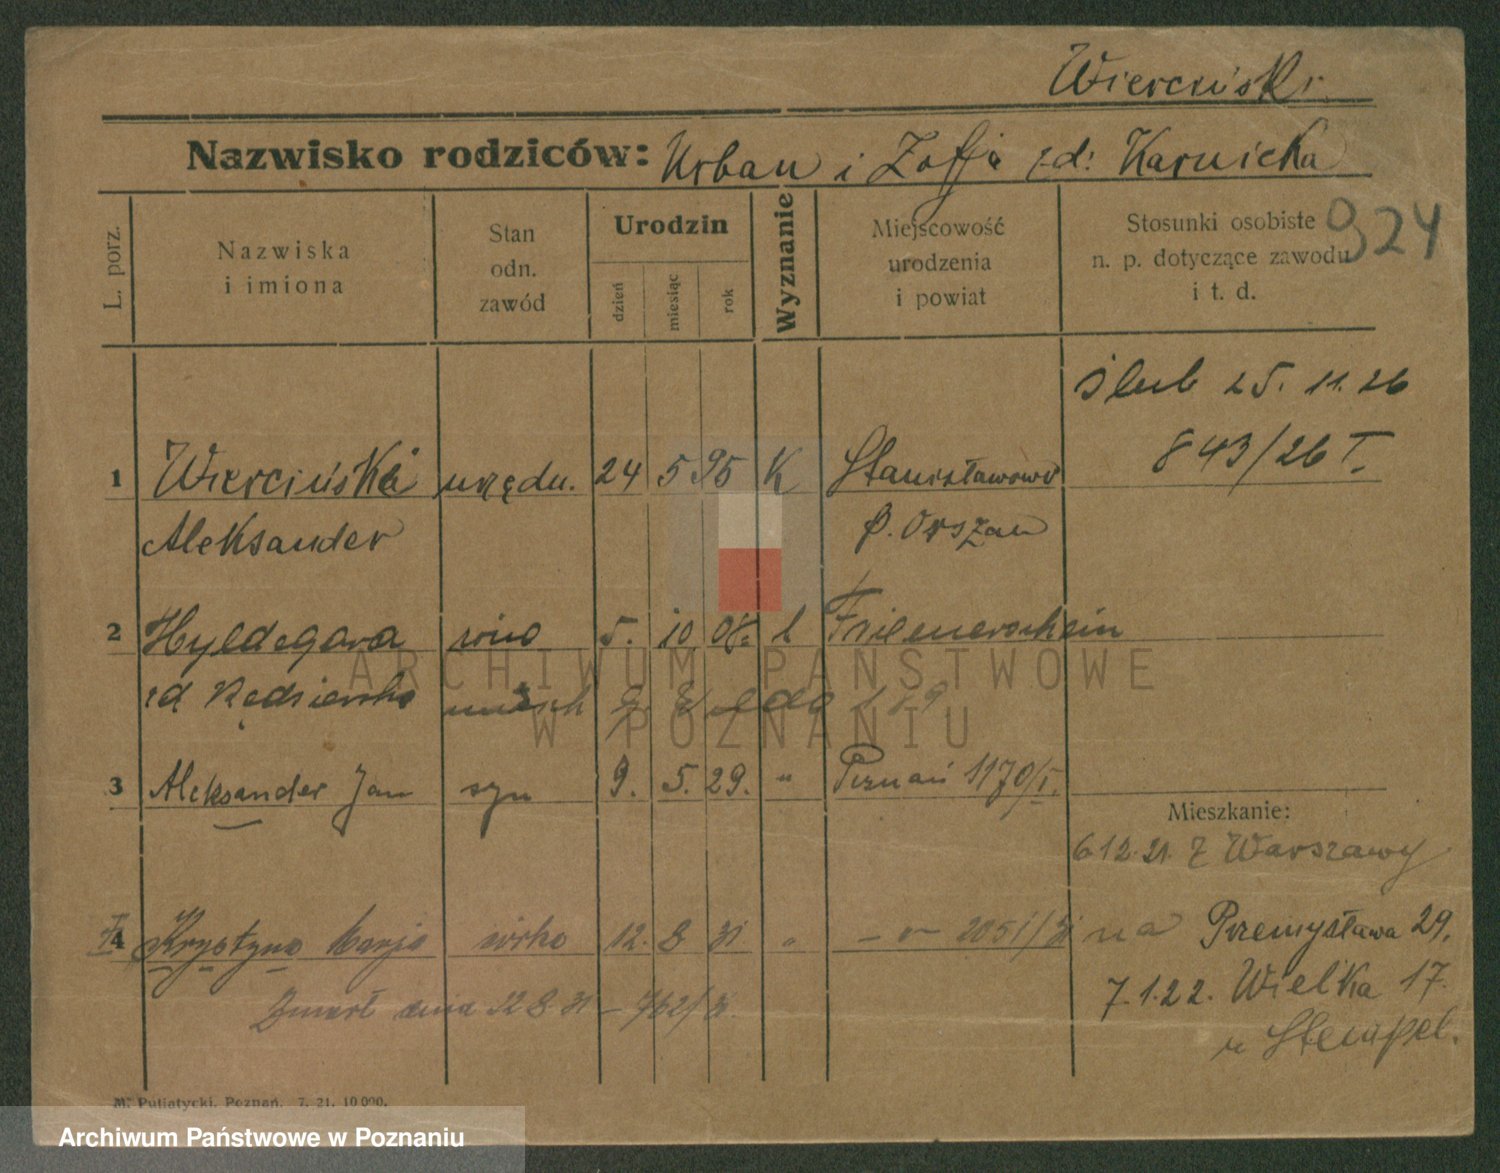 Wierciński
Nazwisko rodziców: Urban i Zofja zd: Karnicka
L. porz.
Nazwiska
i imiona
Stan
odn.
zawód
Urodzin
dzień
miesiąc
rok
Wyznanie
Miejscowość
urodzenia
i powiat
Stosunki osobiste
n. p. dotyczące zawodu
i t. d.
924
ślub 25. 11. 26
843/26 I.
1 Wierciński urzędn. 24 5 95 K Stanisławowo
Aleksander p. Orszan
2 Hyldegarda żona 5. 10 08.
zd Kędzierska
3 Aleksander Jan syn 9. 5. 29. " Poznań 1170/I.
Mieszkanie:
6 12. 21. z Warszawy
4 Krystyna Marja córka 12. 8 31 " 2051/31
na Przemysława 29.
Zmarł dnia 12 8 31 – 762/31.
7.1.22. Wielka 17.
u Stempel.
M. Putiatycki, Poznań. 7. 21. 10 000.
ARCHIWUM PAŃSTWOWE
W POZNANIU
Archiwum Państwowe w Poznaniu